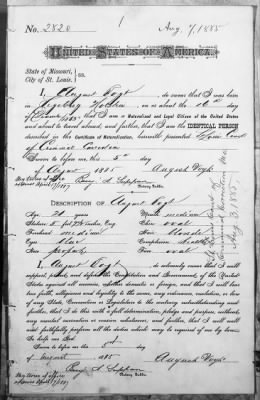 No. 2820
Aug 7/1885
UNITED STATES OF AMERICA
State of Missouri,
City of St. Louis, } ss.
I, August Vogt, do swear that I was born
in on or about the 16th day
of that I am a Naturalized and Loyal Citizen of the United States
and about to travel abroad, and further, that I am the IDENTICAL PERSON
described in the Certificate of Naturalization, herewith presented
of
Sworn to before me this 5th day
of August 1885 August Vogt
My term of office
expires April 17 1889 Notary Public.
DESCRIPTION OF August Vogt
Age years Mouth medium
Stature Chin oval
Forehead medium Hair Blonde
Eyes Blue Complexion Healthy
Nose Face oval
I, August Vogt, do solemnly swear that I will
support, protect and defend the Constitution and Government of the United
States against all enemies, whether domestic or foreign, and that I will bear
true faith, allegiance and loyalty to the same, any ordinance, resolution, or law
of any State, Convention or Legislature to the contrary notwithstanding; and
further, that I do this with a full determination, pledge and purpose, without
any mental reservation or evasion whatsoever, and further, that I will well
and faithfully perform all the duties which may be required of me by law.
So help me God.
Sworn to before me this 5th
day of August 1885 August Vogt
My term of office
expires April 17/1889 Notary Public.
Aug 3, 1885.